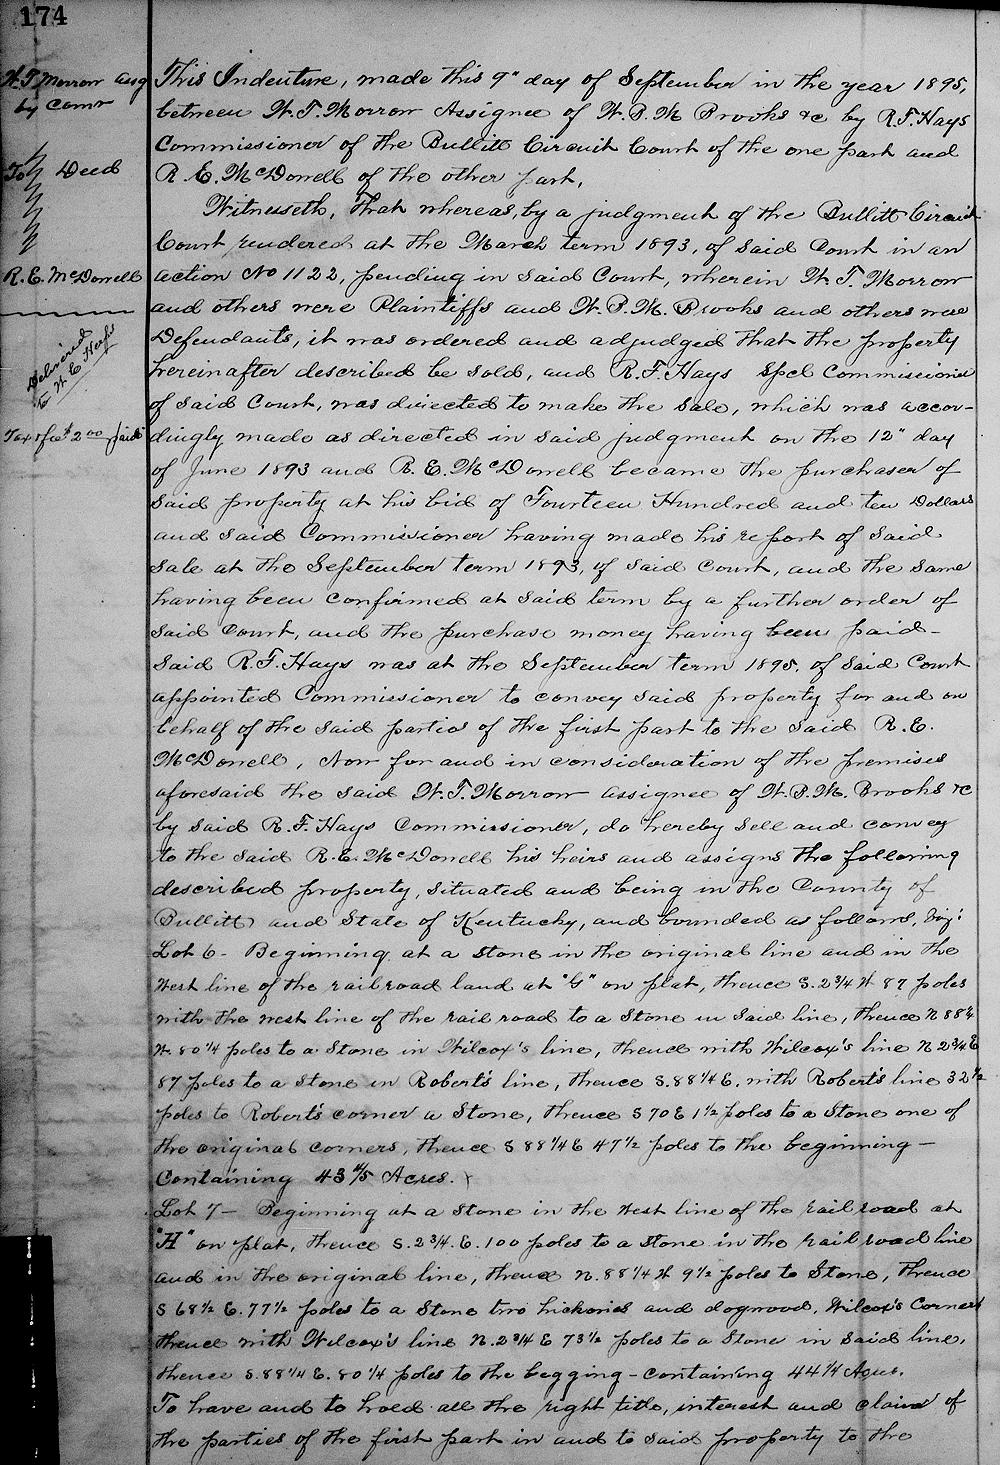 174
W. T. Morrow assg
by Comr
To Deed
R. E. McDowell
Delivered
to W C Hays
Tax & fee $2 00 paid
This Indenture, made this 9" day of September in the year 1895,
between W. T. Morrow Assignee of W. B. M Brooks &c by R. F. Hays
Commissioner of the Bullitt Circuit Court of the one part and
R. E. McDowell of the other part,
Witnesseth, That whereas, by a judgment of the Bullitt Circuit
Court rendered at the March term 1893, of said Court in an
action No 1122, pending in said Court, wherein W. T. Morrow
and others were Plaintiffs and W. B. M. Brooks and others were
Defendants, it was ordered and adjudged that the property
hereinafter described be sold, and R. F. Hays Spcl Commissioner
of said Court, was directed to make the sale, which was accor-
dingly made as directed in said judgment on the 12" day
of June 1893 and R. E. McDowell became the purchaser of
said property at his bid of Fourteen Hundred and ten Dollars
and said Commissioner having made his report of said
sale at the September term 1893, of said Court, and the same
having been confirmed at said term by a further order of
said Court, and the purchase money having been paid -
said R. F. Hays was at the September term 1895, of said Court
appointed Commissioner to convey said property for and on
behalf of the said parties of the first part to the said R. E.
McDowell, Now for and in consideration of the premises
aforesaid the said W. T. Morrow assignee of W. B. M. Brooks &c
by said R. F. Hays Commissioner, do hereby sell and convey
to the said R. E. McDowell his heirs and assigns the following
described property, situated and being in the County of
Bullitt and State of Kentucky, and bounded as follows, viz:
Lot 6 - Beginning at a stone in the original line and in the
West line of the railroad land at "G" on plat, thence S. 2 3/4 W 87 poles
with the west line of the rail road to a Stone in said line, thence N 88 1/4
W. 80 1/4 poles to a Stone in Wilcox's line, thence with Wilcox's line N 2 3/4 E
87 poles to a stone in Robert's line, thence S. 88 1/4 E. with Robert's line 32 1/2
poles to Robert's corner a Stone, thence S 70 E 1 1/2 poles to a Stone one of
the original corners, thence S 88 1/4 E 47 1/2 poles to the beginning -
Containing 43 4/5 Acres.
Lot 7 - Beginning at a stone in the West line of the rail road at
"H" on plat, thence S. 2 3/4. E. 100 poles to a stone in the rail road line
and in the original line, thence N. 88 1/4 W 9 1/2 poles to Stone, thence
S 68 1/2 E. 77 1/2 poles to a Stone two hickories and dogwood, Wilcox's Corner
thence with Wilcox's line N. 2 3/4 E 73 1/2 poles to a Stone in said line,
thence S. 88 1/4 E. 80 1/4 poles to the begging - containing 44 1/4 Acres.
To have and to hold all the right title, interest and claim of
the parties of the first part in and to said property to the